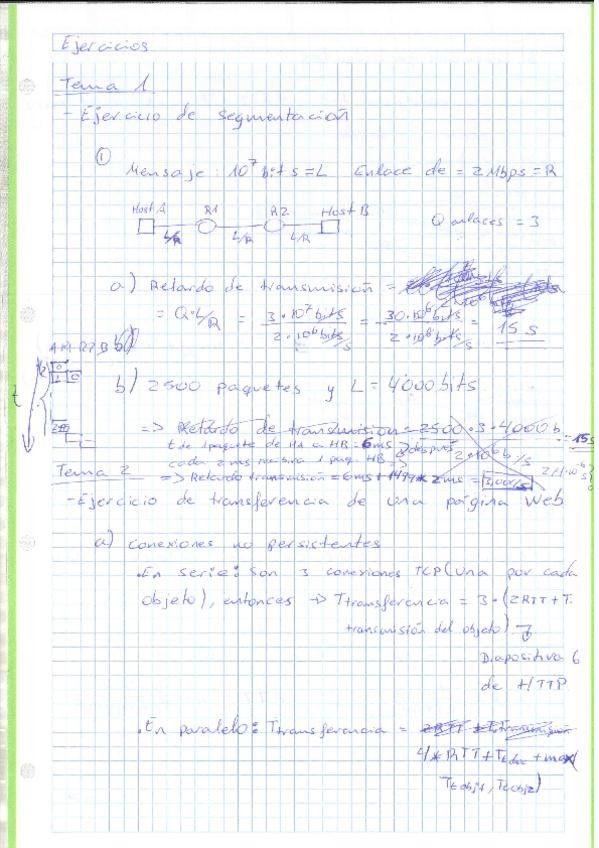 Ejercicios
Tema 1
- Ejercicio de segmentación
① Mensaje: 10^7 bits = L Enlace de = 2 Mbps = R
Host A R1 R2 Host B
L/R L/R L/R
Q enlaces = 3
a) Retardo de transmisión =
= Q·L/R = 3·10^7 bits / 2·10^6 bits/s = 30·10^6 bits / 2·10^6 bits/s = 15 s
A R1 R2 B
t
b) 2500 paquetes y L = 4000 bits
=> Retardo de transmisión = 2500·3·4000 b / 2·10^6 b/s = 15s
t de 1 paquete de HA a HB = 6ms después
cada 2 ms 1 paq. HB =>
=> Retardo transmisión = 6ms +
Tema 2
- Ejercicio de transferencia de una página Web
a) conexiones no persistentes
• En serie: Son 3 conexiones TCP (una por cada
objeto), entonces -> Ttransferencia = 3·(2RTT + T.
transmisión del objeto)
Diapositiva 6
de HTTP
• En paralelo: Ttransferencia =
4*RTT + Ttdoc + max(
Ttobj1, Ttobj2)